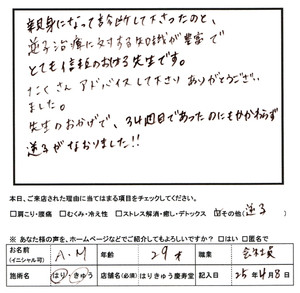 親身になって診断して下さったのと、
逆子治療に対する知識が豊富で
とても信頼のおける先生です。
たくさんアドバイスして下さりありがとうござい
ました。
先生のおかげで、34週目であったのにもかかわらず
逆子がなおりました!!
本日、ご来店された理由に当てはまる項目をチェックしてください。
□肩こり・腰痛 □むくみ・冷え性 □ストレス解消・癒し・デトックス ☑その他(逆子)
※ あなた様の声を、ホームページなどでご紹介してもよろしいですか? □はい □匿名で
名前(イニシャル可) A・M 年齢 29才 職業 会社員
施術名 はり・きゅう 店舗名(必須) はりきゅう慶寿堂 記入日 25年4月8日